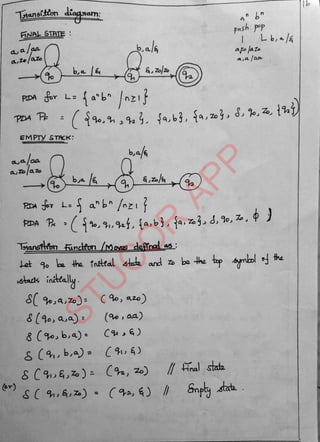 Transition diagram:
FINAL STATE :
aⁿ bⁿ
push pop
b, a/ε
a, z0/az0
a, a/aa
a, a/aa
a, z0/az0
b, a/ε
q0
b, a /ε
q1
ε, z0/z0
q2
PDA for L = { aⁿbⁿ / n≥1 }
PDA PF = ( {q0, q1, q2}, {a,b}, {a, z0}, δ, q0, z0, {q2} )
EMPTY STACK:
a, a/aa
a, z0/az0
b, a/ε
q0
b, a /ε
q1
ε, z0/ε
q2
PDA for L = { aⁿbⁿ / n≥1 }
PDA PN = ( {q0, q1, q2}, {a,b}, {a, z0}, δ, q0, z0, φ )
Transition Function / Moves defined as :
Let q0 be the initial state and z0 be the top symbol of the
stack initially.
δ( q0, a, z0) = (q0, az0)
δ (q0, a, a) = (q0, aa)
δ (q0, b, a) = (q1, ε)
δ (q1, b, a) = (q1, ε)
δ (q1, ε, z0) = (q2, z0) // Final state
(or) δ (q1, ε, z0) = (q2, ε) // Empty state.
STUCOR APP